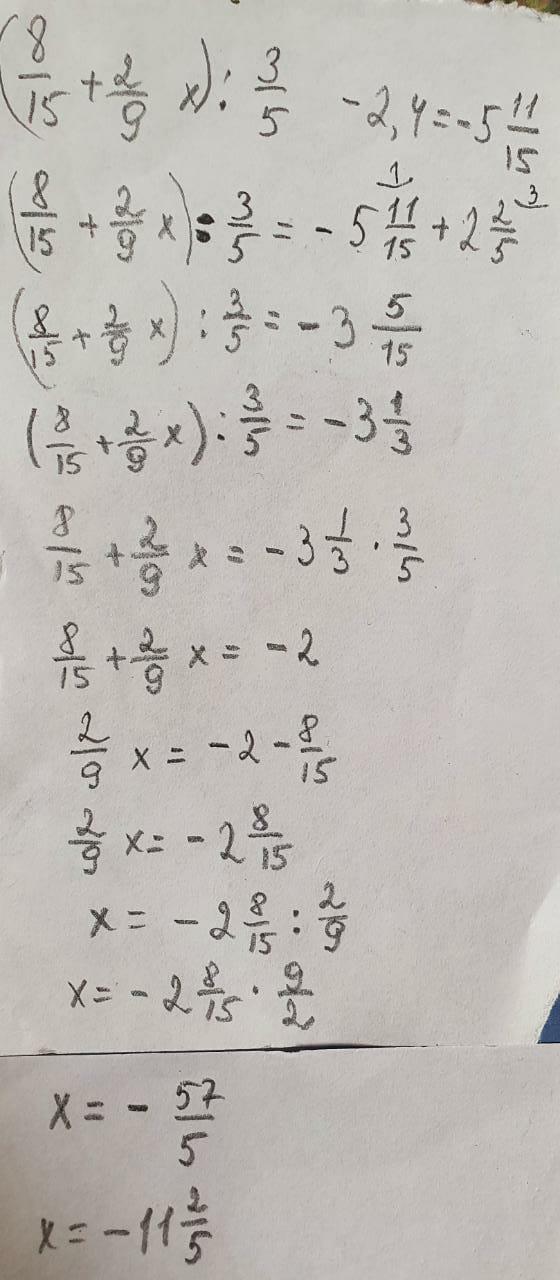 (8/15 + 2/9 x) : 3/5 -2,4 = -5 11/15
(8/15 + 2/9 x) : 3/5 = -5 11/15 1 + 2 2/5 3
(8/15 + 2/9 x) : 3/5 = -3 5/15
(8/15 + 2/9 x) : 3/5 = -3 1/3
8/15 + 2/9 x = -3 1/3 · 3/5
8/15 + 2/9 x = -2
2/9 x = -2 - 8/15
2/9 x = -2 8/15
x = -2 8/15 : 2/9
x = -2 8/15 · 9/2
x = - 57/5
x = -11 2/5